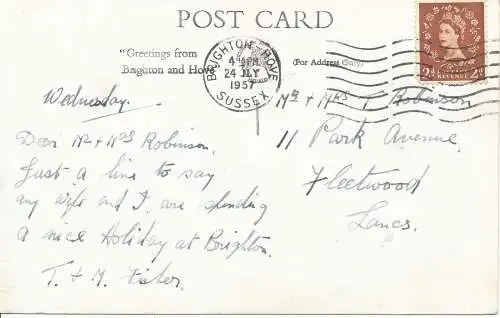 POST CARD
"Greetings from
Brighton and Hove"
BRIGHTON & HOVE
4- PM
24 JLY
1957
SUSSEX
(For Address Only)
2D POSTAGE REVENUE 2D
Wednesday.
Dear Mr + Mrs Robinson.
Just a line to say
my wife and I are spending
a nice Holiday at Brighton.
T. & M.
Mr + Mrs T Robinson
11 Park Avenue,
Fleetwood
Lancs.